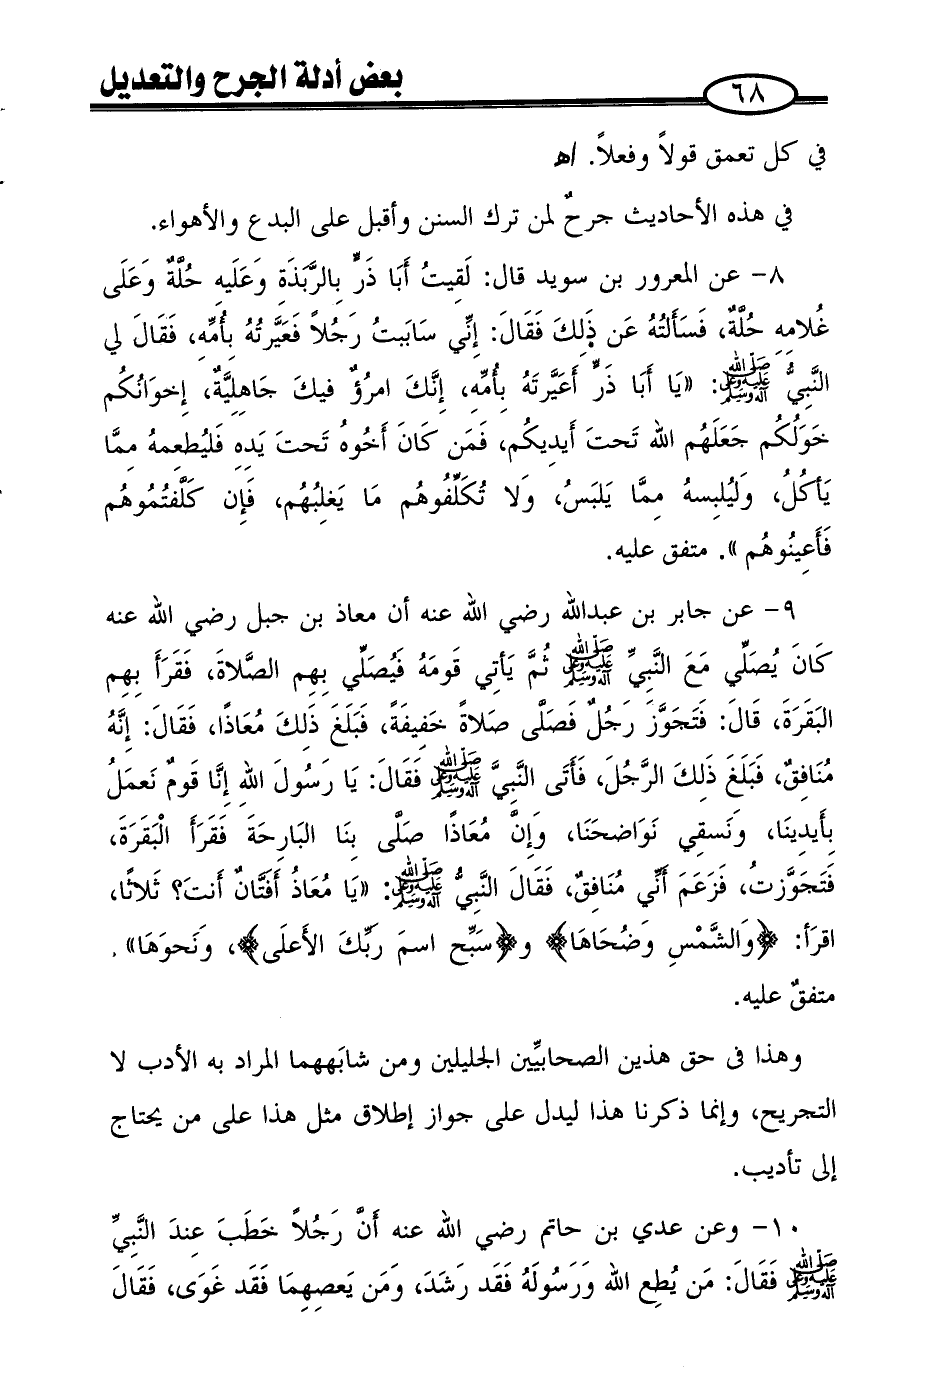 بعض أدلة الجرح والتعديل
٦٨
في كل تعمق قولاً وفعلاً. اهـ
في هذه الأحاديث جرحٌ لمن ترك السنن وأقبل على البدع والأهواء.
٨- عن المعرور بن سويد قال: لَقِيتُ أَبَا ذَرٍّ بِالرَّبَذَةِ وَعَلَيهِ حُلَّةٌ وَعَلَى
غُلامِهِ حُلَّةٌ، فَسَأَلتُهُ عَن ذَلِكَ فَقَالَ: إِنِّي سَابَبتُ رَجُلاً فَعَيَّرتُهُ بِأُمِّهِ، فَقَالَ لي
النَّبيُّ ﷺ: «يَا أَبَا ذَرٍّ أَعَيَّرتَهُ بِأُمِّهِ، إِنَّكَ امرُؤٌ فيكَ جَاهِليَّةٌ، إِخوَانُكُم
خَوَلُكُم جَعَلَهُم الله تَحتَ أَيدِيكُم، فَمَن كَانَ أَخُوهُ تَحتَ يَدِهِ فَليُطعِمهُ مِمَّا
يَأكُلُ، وَليُلبِسهُ مِمَّا يَلبَسُ، وَلا تُكَلِّفُوهُم مَا يَغلِبُهُم، فَإِن كَلَّفتُمُوهُم
فَأَعِينُوهُم». متفق عليه.
٩- عن جابر بن عبدالله رضي الله عنه أن معاذ بن جبل رضي الله عنه
كَانَ يُصَلِّي مَعَ النَّبيِّ ﷺ ثُمَّ يَأتي قَومَهُ فَيُصَلِّي بِهِم الصَّلاةَ، فَقَرَأَ بِهِم
البَقَرَةَ، قَالَ: فَتَجَوَّزَ رَجُلٌ فَصَلَّى صَلاةً خَفِيفَةً، فَبَلَغَ ذَلِكَ مُعَاذًا، فَقَالَ: إِنَّهُ
مُنَافِقٌ، فَبَلَغَ ذَلِكَ الرَّجُلَ، فَأَتَى النَّبيَّ ﷺ فَقَالَ: يَا رَسُولَ اللهِ إِنَّا قَومٌ نَعمَلُ
بِأَيدِينَا، وَنَسقِي نَوَاضحَنَا، وَإِنَّ مُعَاذًا صَلَّى بِنَا البَارِحَةَ فَقَرَأَ الْبَقَرَةَ،
فَتَجَوَّزتُ، فَزَعَمَ أَنِّي مُنَافِقٌ، فَقَالَ النَّبيُّ ﷺ: «يَا مُعَاذُ أَفَتَّانٌ أَنتَ؟ ثَلاثًا،
اقرَأ: ﴿وَالشَّمْسِ وَضُحَاهَا﴾ و﴿سَبِّح اسمَ رَبِّكَ الأَعلَى﴾، وَنَحوَهَا».
متفقٌ عليه.
وهذا فى حق هذين الصحابيِّين الجليلين ومن شابَههما المراد به الأدب لا
التجريح، وإنما ذكرنا هذا ليدل على جواز إطلاق مثل هذا على من يحتاج
إلى تأديب.
١٠- وعن عدي بن حاتم رضي الله عنه أَنَّ رَجُلاً خَطَبَ عِندَ النَّبيِّ
ﷺ فَقَالَ: مَن يُطِع الله وَرَسُولَهُ فَقَد رَشَدَ، وَمَن يَعصِهِمَا فَقَد غَوَى، فَقَالَ